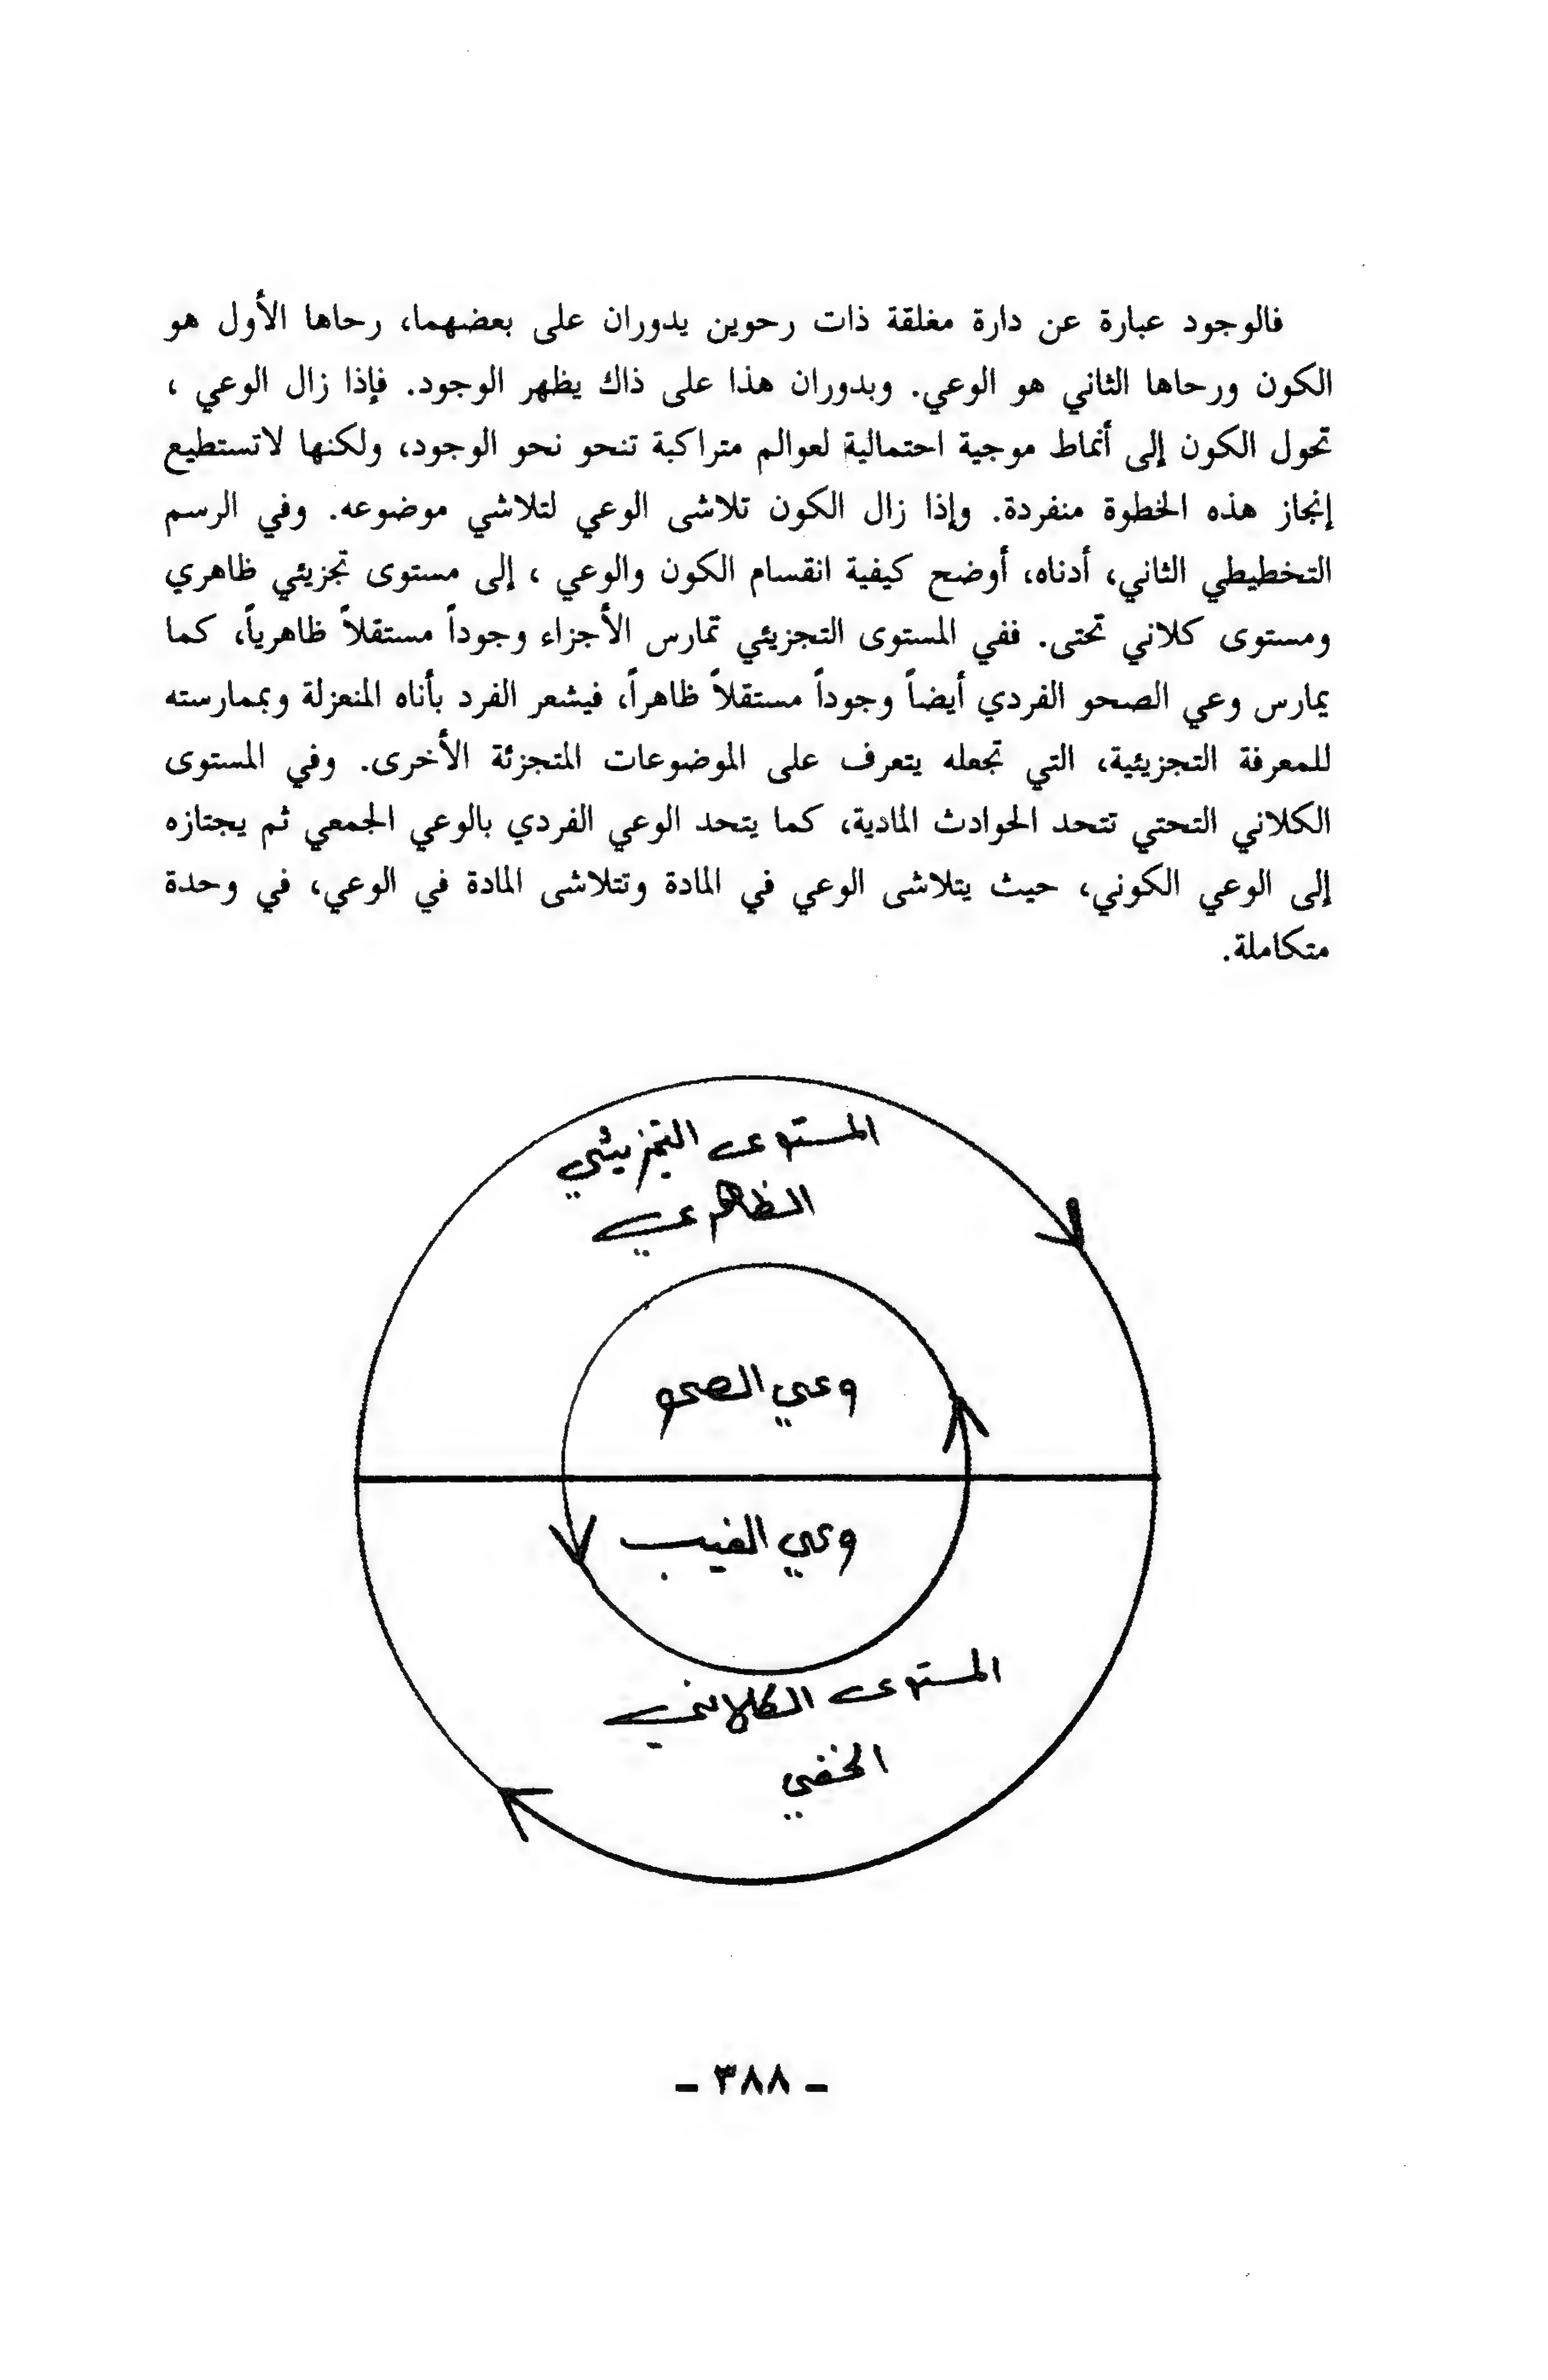 فالوجود عبارة عن دارة مغلقة ذات رحوين يدوران على بعضهما، رحاها الأول هو
الكون ورحاها الثاني هو الوعي. وبدوران هذا على ذاك يظهر الوجود. فإذا زال الوعي ،
تحول الكون إلى أنماط موجية احتمالية لعوالم متراكبة تنحو نحو الوجود، ولكنها لاتستطيع
إنجاز هذه الخطوة منفردة. وإذا زال الكون تلاشى الوعي لتلاشي موضوعه. وفي الرسم
التخطيطي الثاني، أدناه، أوضح كيفية انقسام الكون والوعي ، إلى مستوى تجزيئي ظاهري
ومستوى كلاني تحتى. ففي المستوى التجزيئي تمارس الأجزاء وجوداً مستقلاً ظاهرياً، كما
يمارس وعي الصحو الفردي أيضاً وجوداً مستقلاً ظاهراً، فيشعر الفرد بأناه المنعزلة وبممارسته
للمعرفة التجزيئية، التي تجعله يتعرف على الموضوعات المتجزئة الأخرى. وفي المستوى
الكلاني التحتي تتحد الحوادث المادية، كما يتحد الوعي الفردي بالوعي الجمعي ثم يجتازه
إلى الوعي الكوني، حيث يتلاشى الوعي في المادة وتتلاشى المادة في الوعي، في وحدة
متكاملة.
المستوى التجزيئي
الظاهري
وعي الصحو
وعي الغيب
المستوى الكلاني
الخفي
- ٣٨٨ -